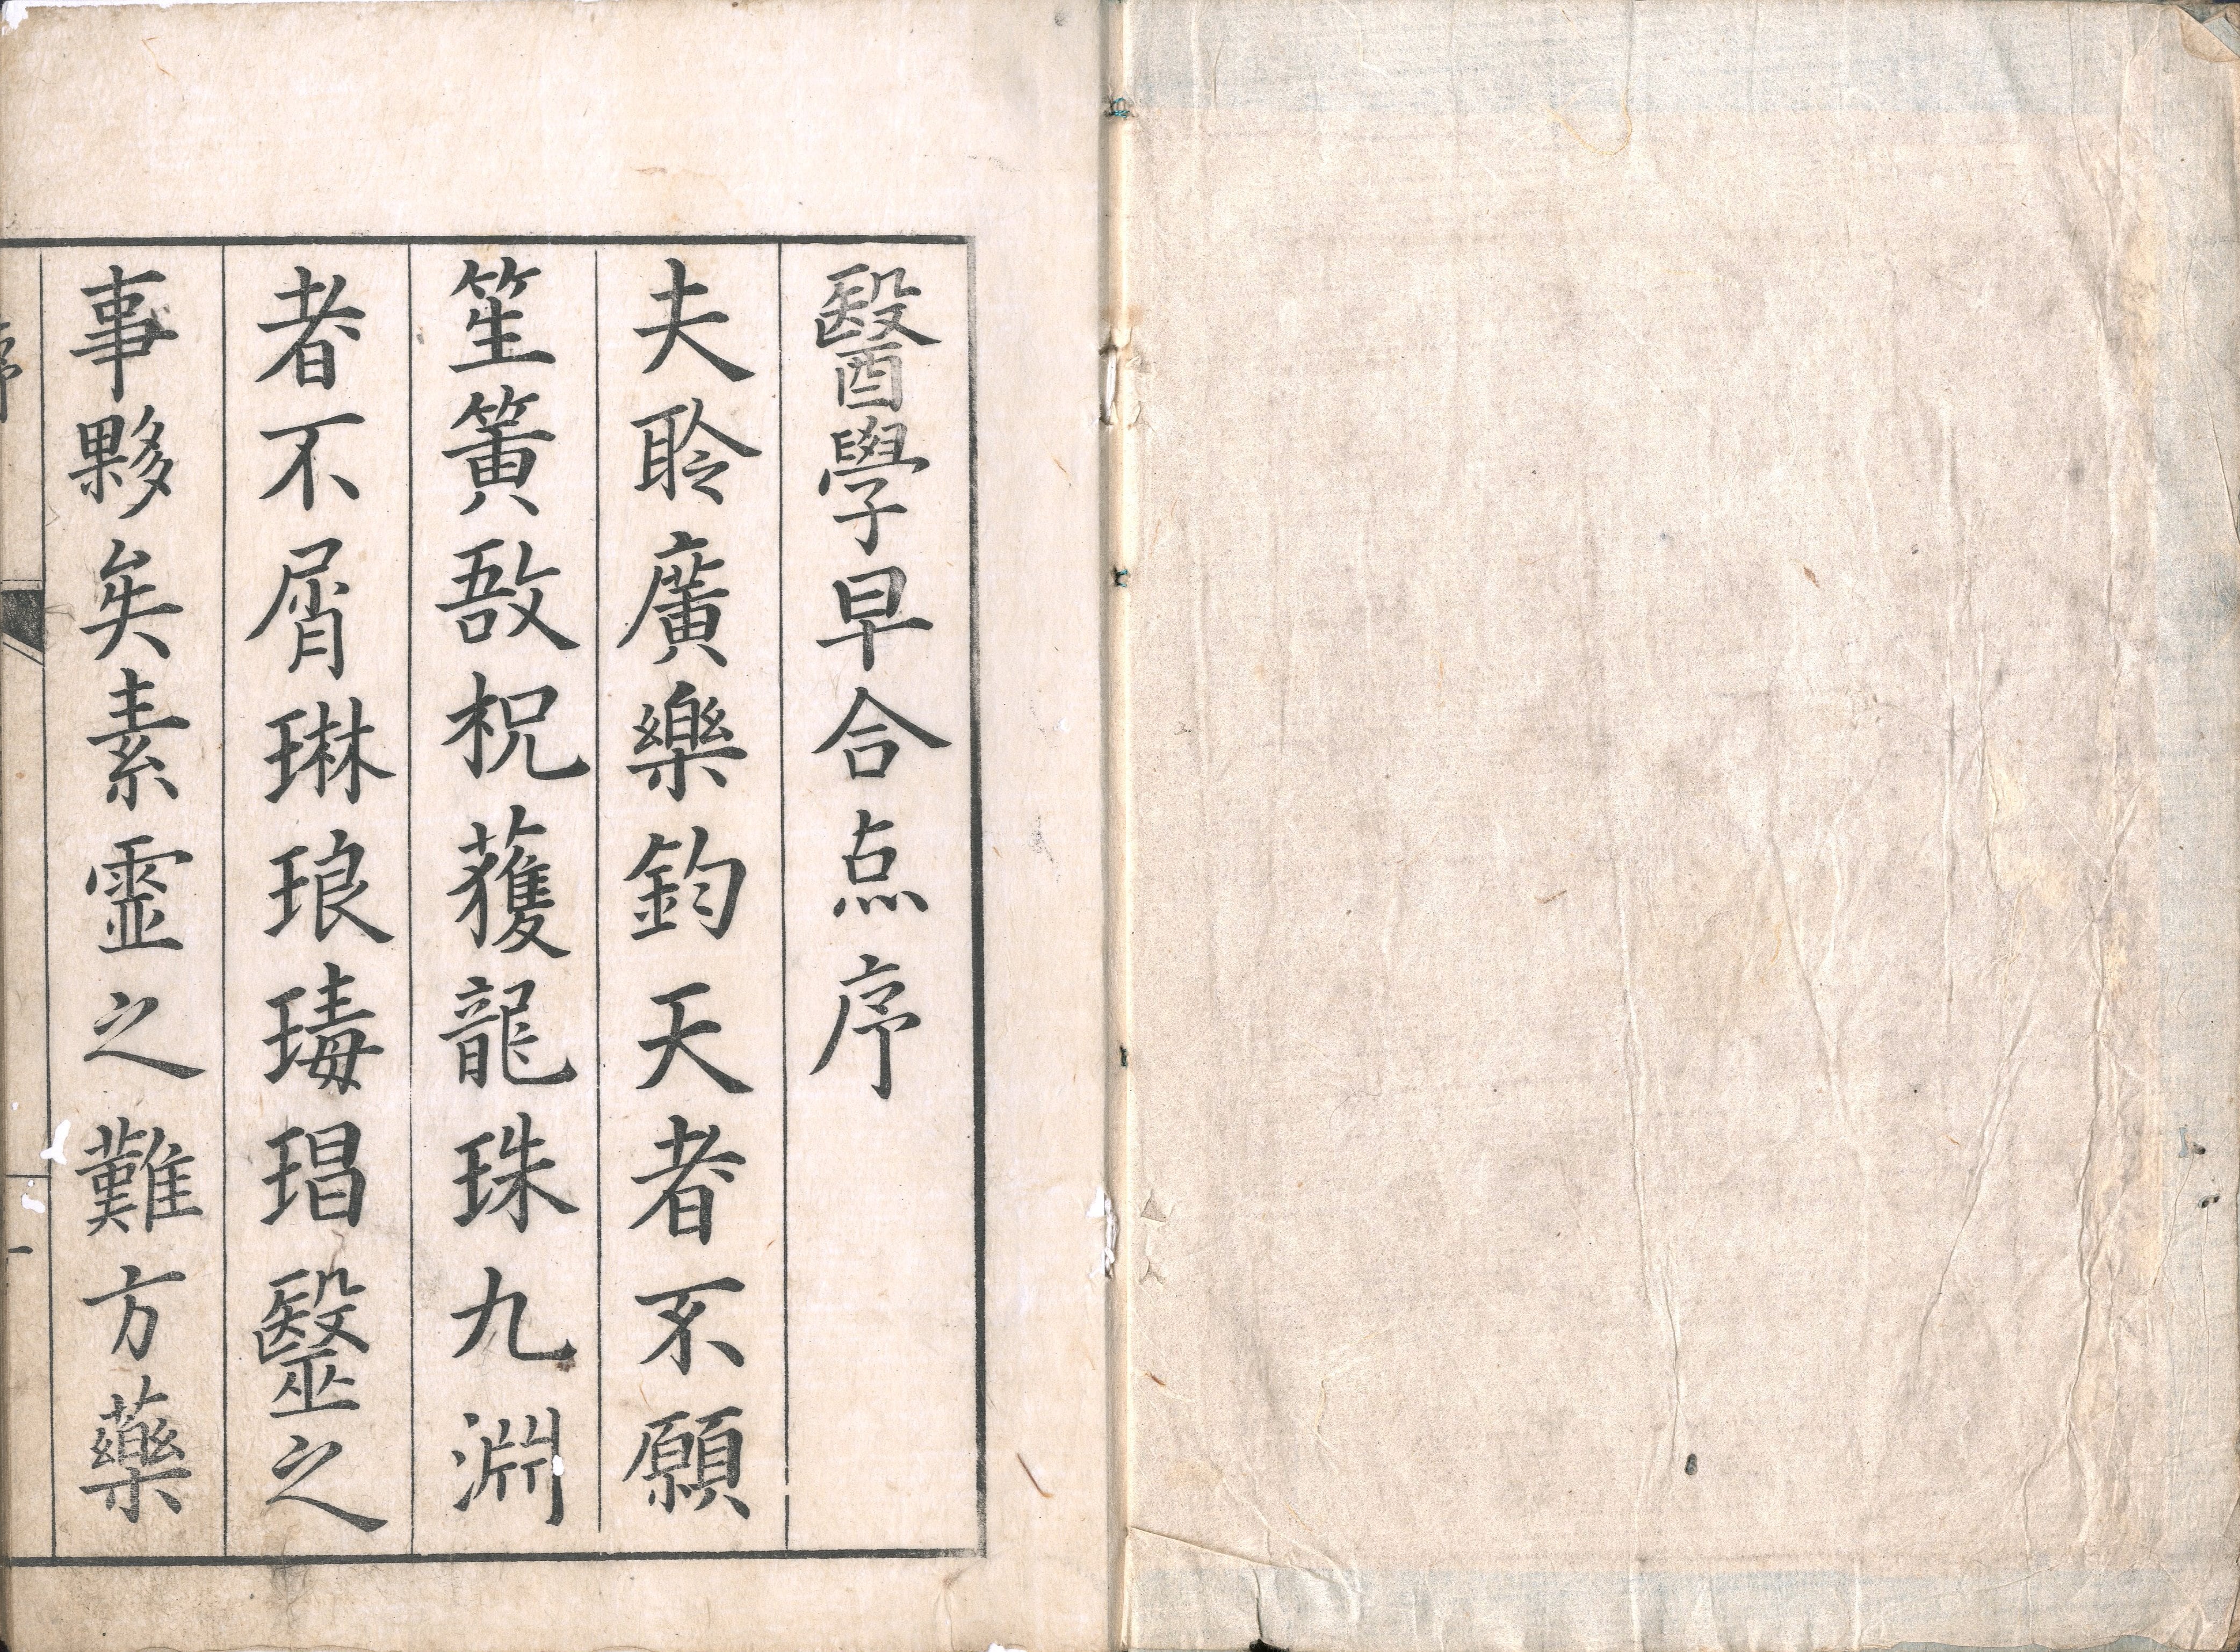 醫學早合点序
夫聆廣樂鈞天者不願
笙簧敔柷獲龍珠九淵
者不屑琳琅瑇瑁毉之
事夥矣素霊之難方藥
序
一